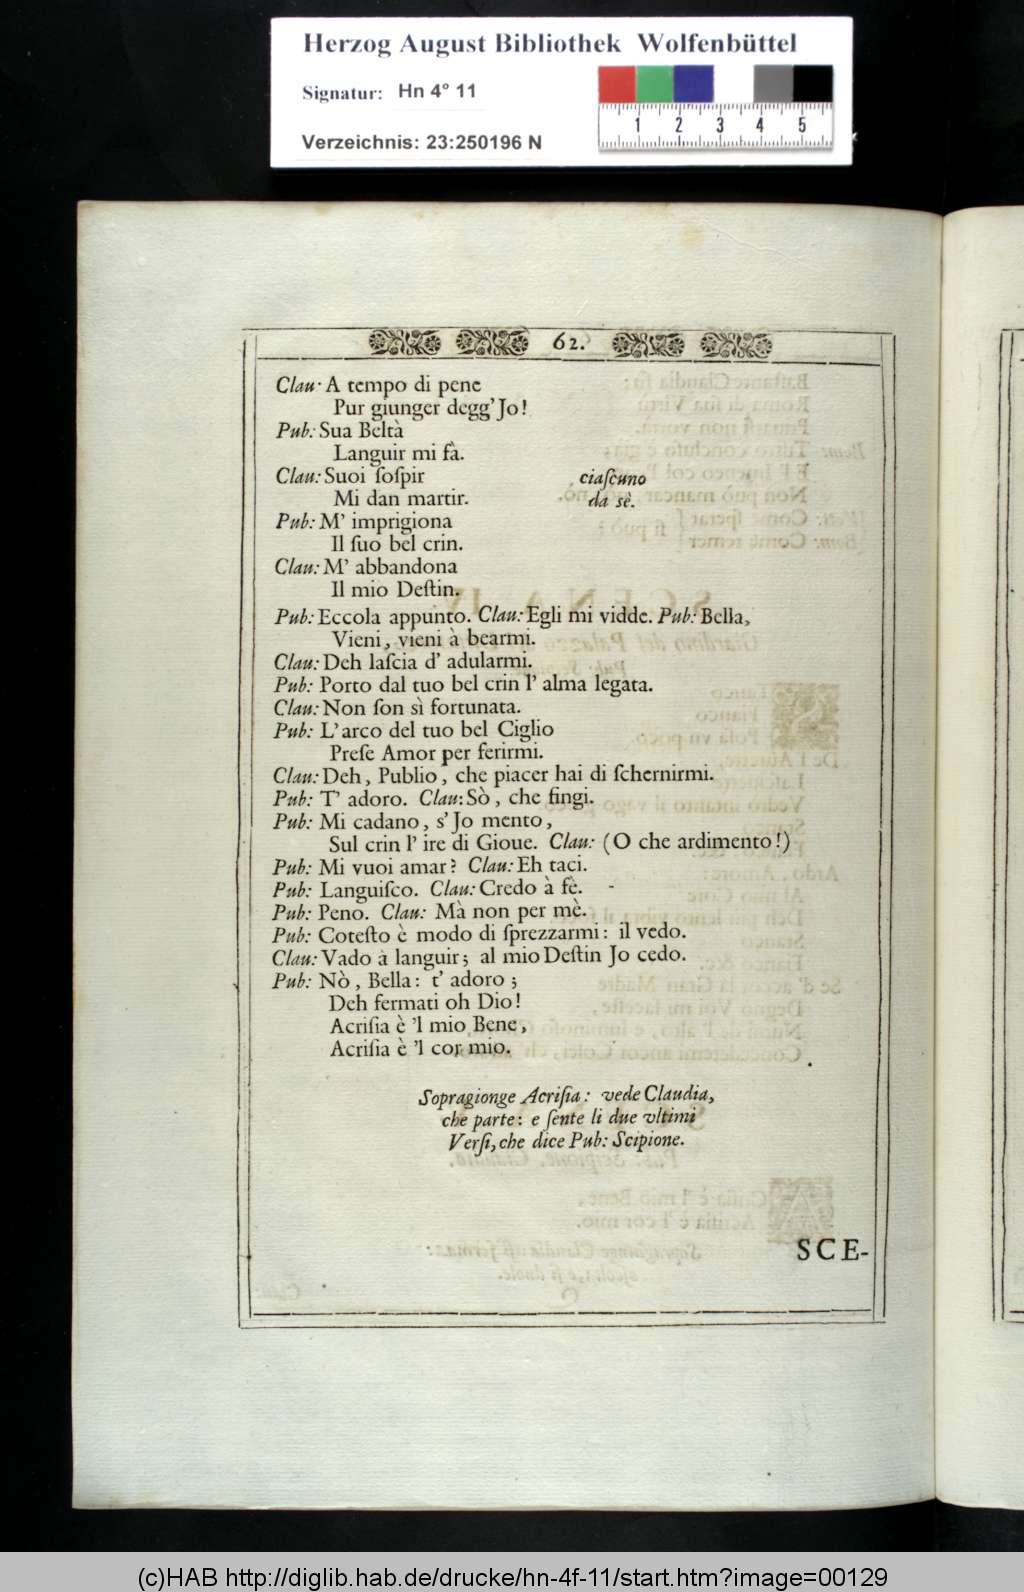 Herzog August Bibliothek Wolfenbüttel
Signatur: Hn 4° 11
Verzeichnis: 23:250196 N
1 2 3 4 5
62.
Clau: A tempo di pene
Pur giunger degg' Jo!
Pub: Sua Beltà
Languir mi fà.
Clau: Suoi ſoſpir ciaſcuno
Mi dan martir. da sè.
Pub: M' imprigiona
Il ſuo bel crin.
Clau: M' abbandona
Il mio Deſtin.
Pub: Eccola appunto. Clau: Egli mi vidde. Pub: Bella,
Vieni, vieni à bearmi.
Clau: Deh laſcia d' adularmi.
Pub: Porto dal tuo bel crin l' alma legata.
Clau: Non ſon sì fortunata.
Pub: L' arco del tuo bel Ciglio
Preſe Amor per ferirmi.
Clau: Deh, Publio, che piacer hai di ſchernirmi.
Pub: T' adoro. Clau: Sò, che fingi.
Pub: Mi cadano, s' Jo mento,
Sul crin l' ire di Gioue. Clau: (O che ardimento!)
Pub: Mi vuoi amar? Clau: Eh taci.
Pub: Languiſco. Clau: Credo à fè.
Pub: Peno. Clau: Mà non per mè.
Pub: Coteſto è modo di ſprezzarmi: il vedo.
Clau: Vado à languir; al mio Deſtin Jo cedo.
Pub: Nò, Bella: t' adoro;
Deh fermati oh Dio!
Acriſia è 'l mio Bene,
Acriſia è 'l cor mio.
Sopragionge Acriſia: vede Claudia,
che parte: e ſente li due vltimi
Verſi, che dice Pub: Scipione.
SCE-
(c)HAB http://diglib.hab.de/drucke/hn-4f-11/start.htm?image=00129